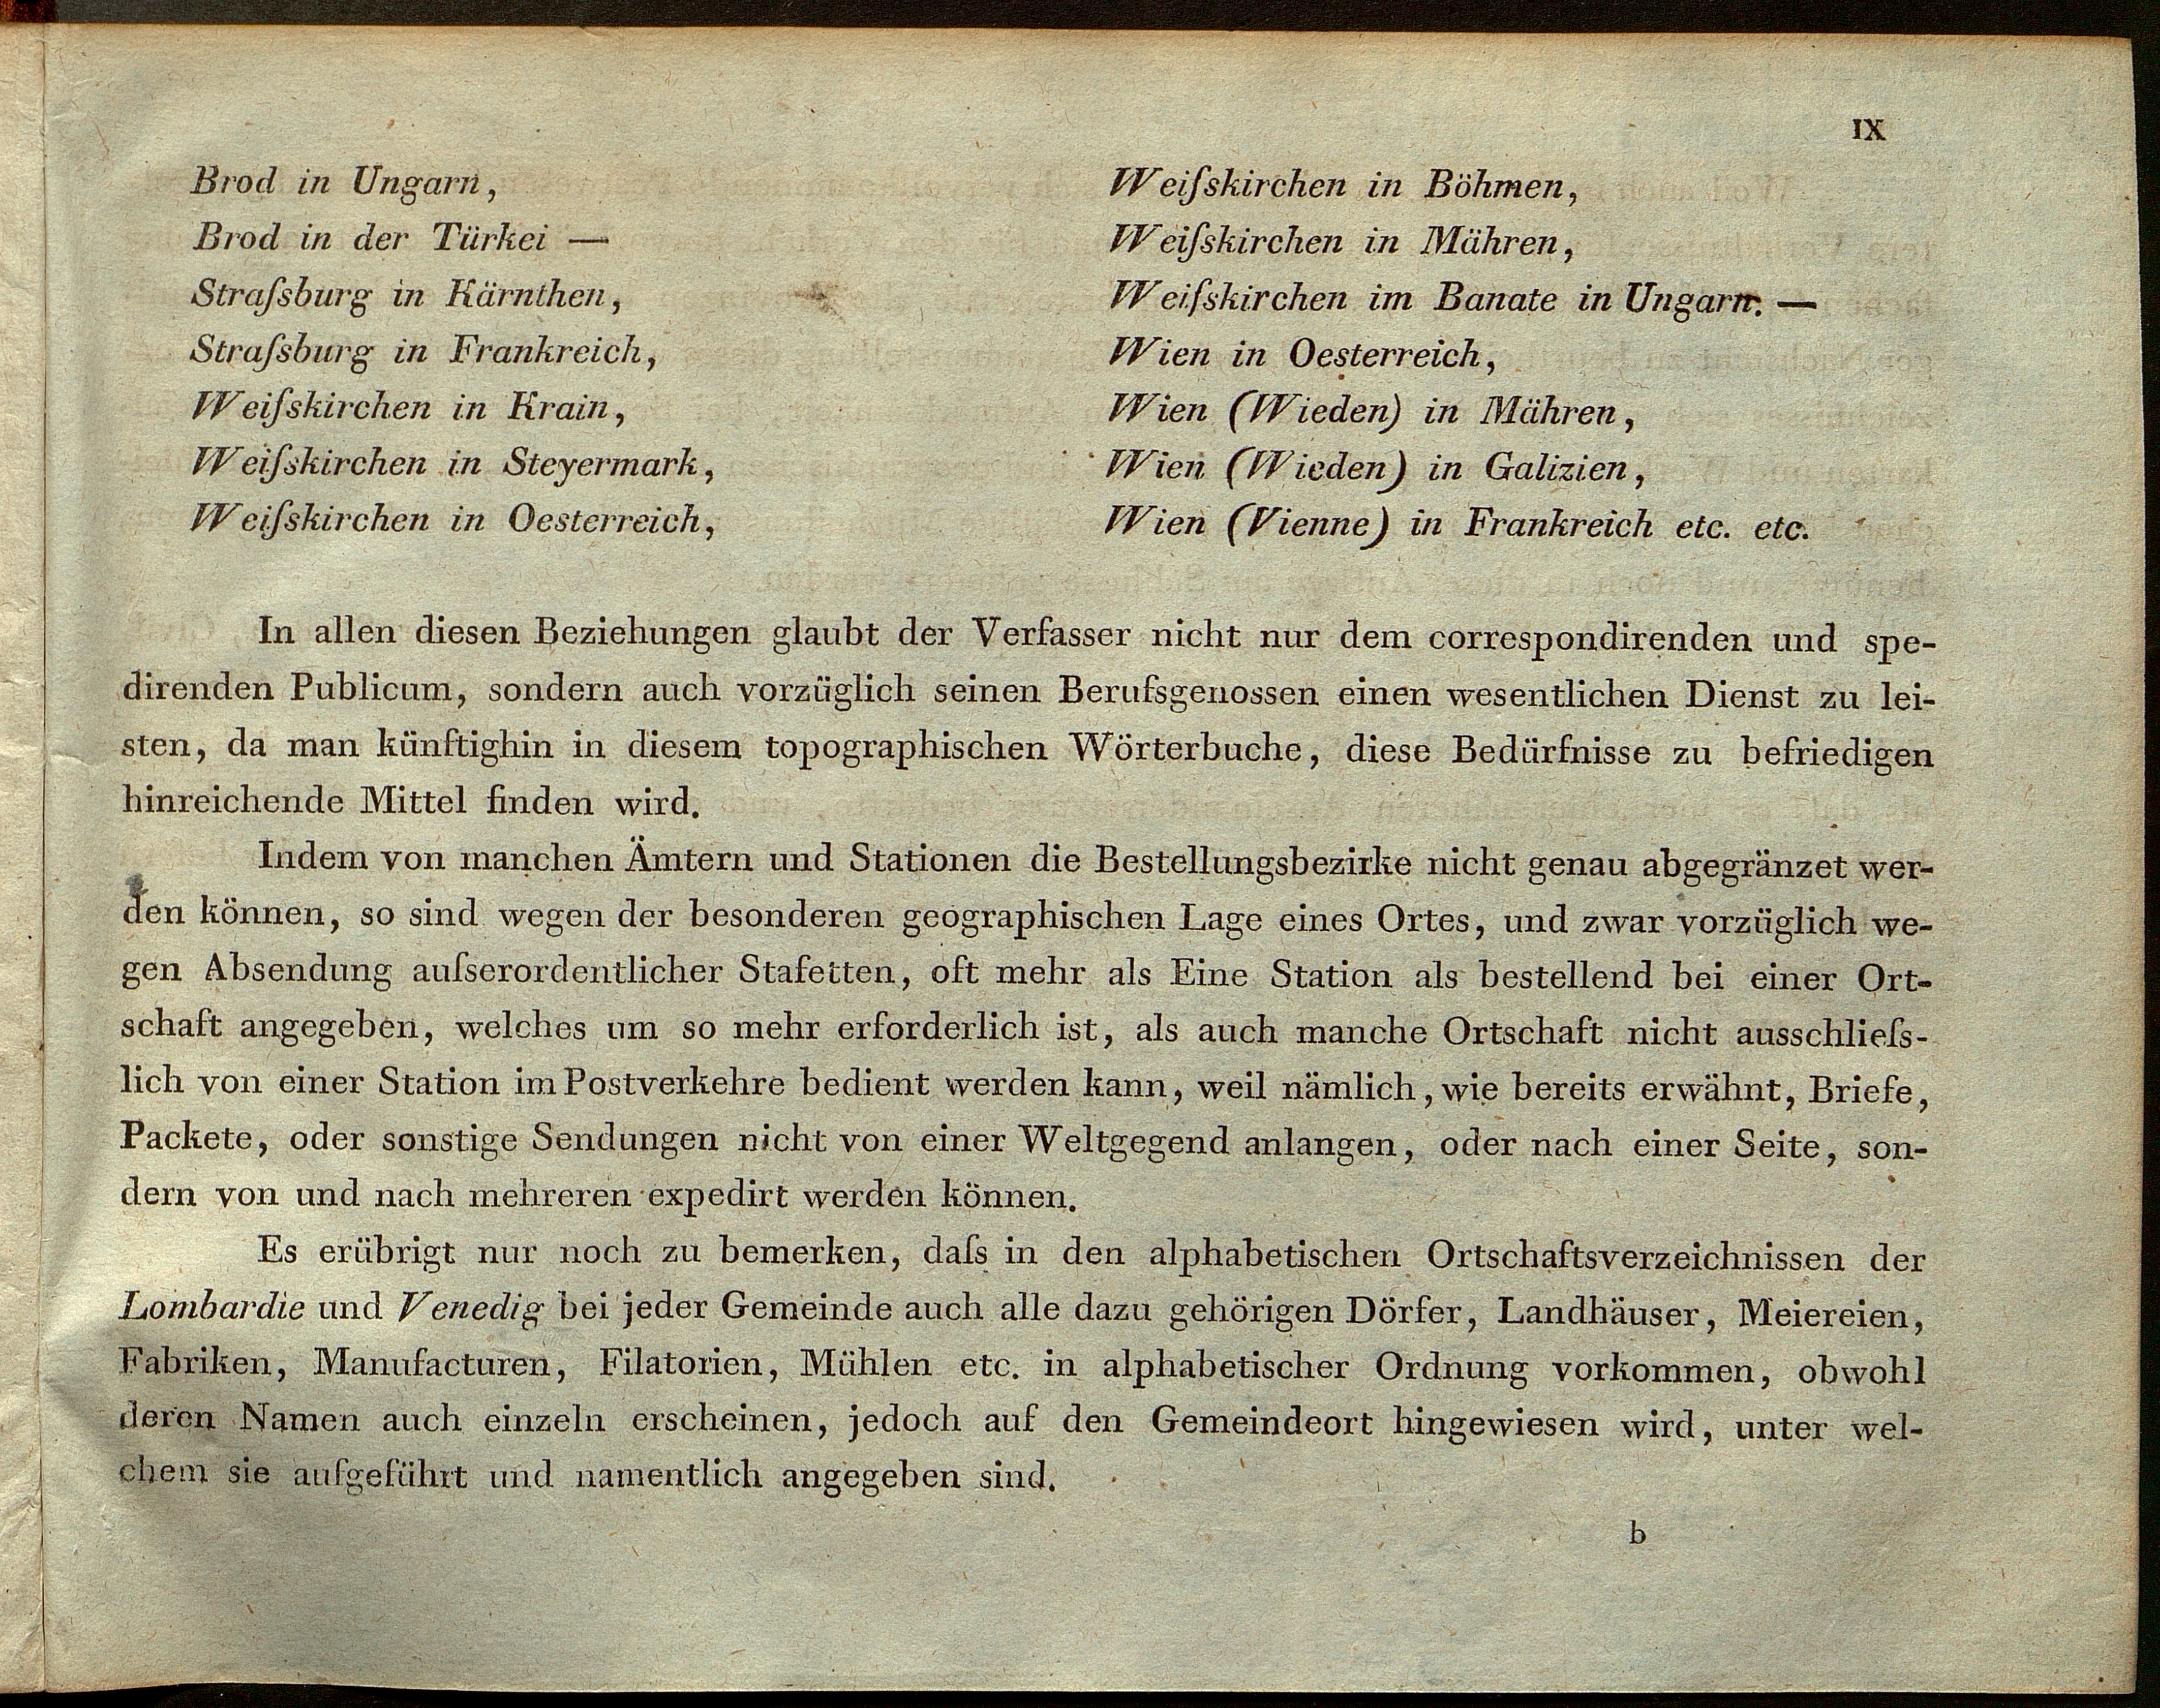 IX
Brod in Ungarn,
Brod in der Türkei —
Straſsburg in Kärnthen,
Straſsburg in Frankreich,
Weiſskirchen in Krain,
Weiſskirchen in Steyermark,
Weiſskirchen in Oesterreich,
Weiſskirchen in Böhmen,
Weiſskirchen in Mähren,
Weiſskirchen im Banate in Ungarn. —
Wien in Oesterreich,
Wien (Wieden) in Mähren,
Wien (Wieden) in Galizien,
Wien (Vienne) in Frankreich etc. etc.
In allen diesen Beziehungen glaubt der Verfasser nicht nur dem correspondirenden und spe-
direnden Publicum, sondern auch vorzüglich seinen Berufsgenossen einen wesentlichen Dienst zu lei-
sten, da man künftighin in diesem topographischen Wörterbuche, diese Bedürfnisse zu befriedigen
hinreichende Mittel finden wird.
Indem von manchen Ämtern und Stationen die Bestellungsbezirke nicht genau abgegränzet wer-
den können, so sind wegen der besonderen geographischen Lage eines Ortes, und zwar vorzüglich we-
gen Absendung auſserordentlicher Stafetten, oft mehr als Eine Station als bestellend bei einer Ort-
schaft angegeben, welches um so mehr erforderlich ist, als auch manche Ortschaft nicht ausschlieſs-
lich von einer Station im Postverkehre bedient werden kann, weil nämlich, wie bereits erwähnt, Briefe,
Packete, oder sonstige Sendungen nicht von einer Weltgegend anlangen, oder nach einer Seite, son-
dern von und nach mehreren expedirt werden können.
Es erübrigt nur noch zu bemerken, daſs in den alphabetischen Ortschaftsverzeichnissen der
Lombardie und Venedig bei jeder Gemeinde auch alle dazu gehörigen Dörfer, Landhäuser, Meiereien,
Fabriken, Manufacturen, Filatorien, Mühlen etc. in alphabetischer Ordnung vorkommen, obwohl
deren Namen auch einzeln erscheinen, jedoch auf den Gemeindeort hingewiesen wird, unter wel-
chem sie aufgeführt und namentlich angegeben sind.
b